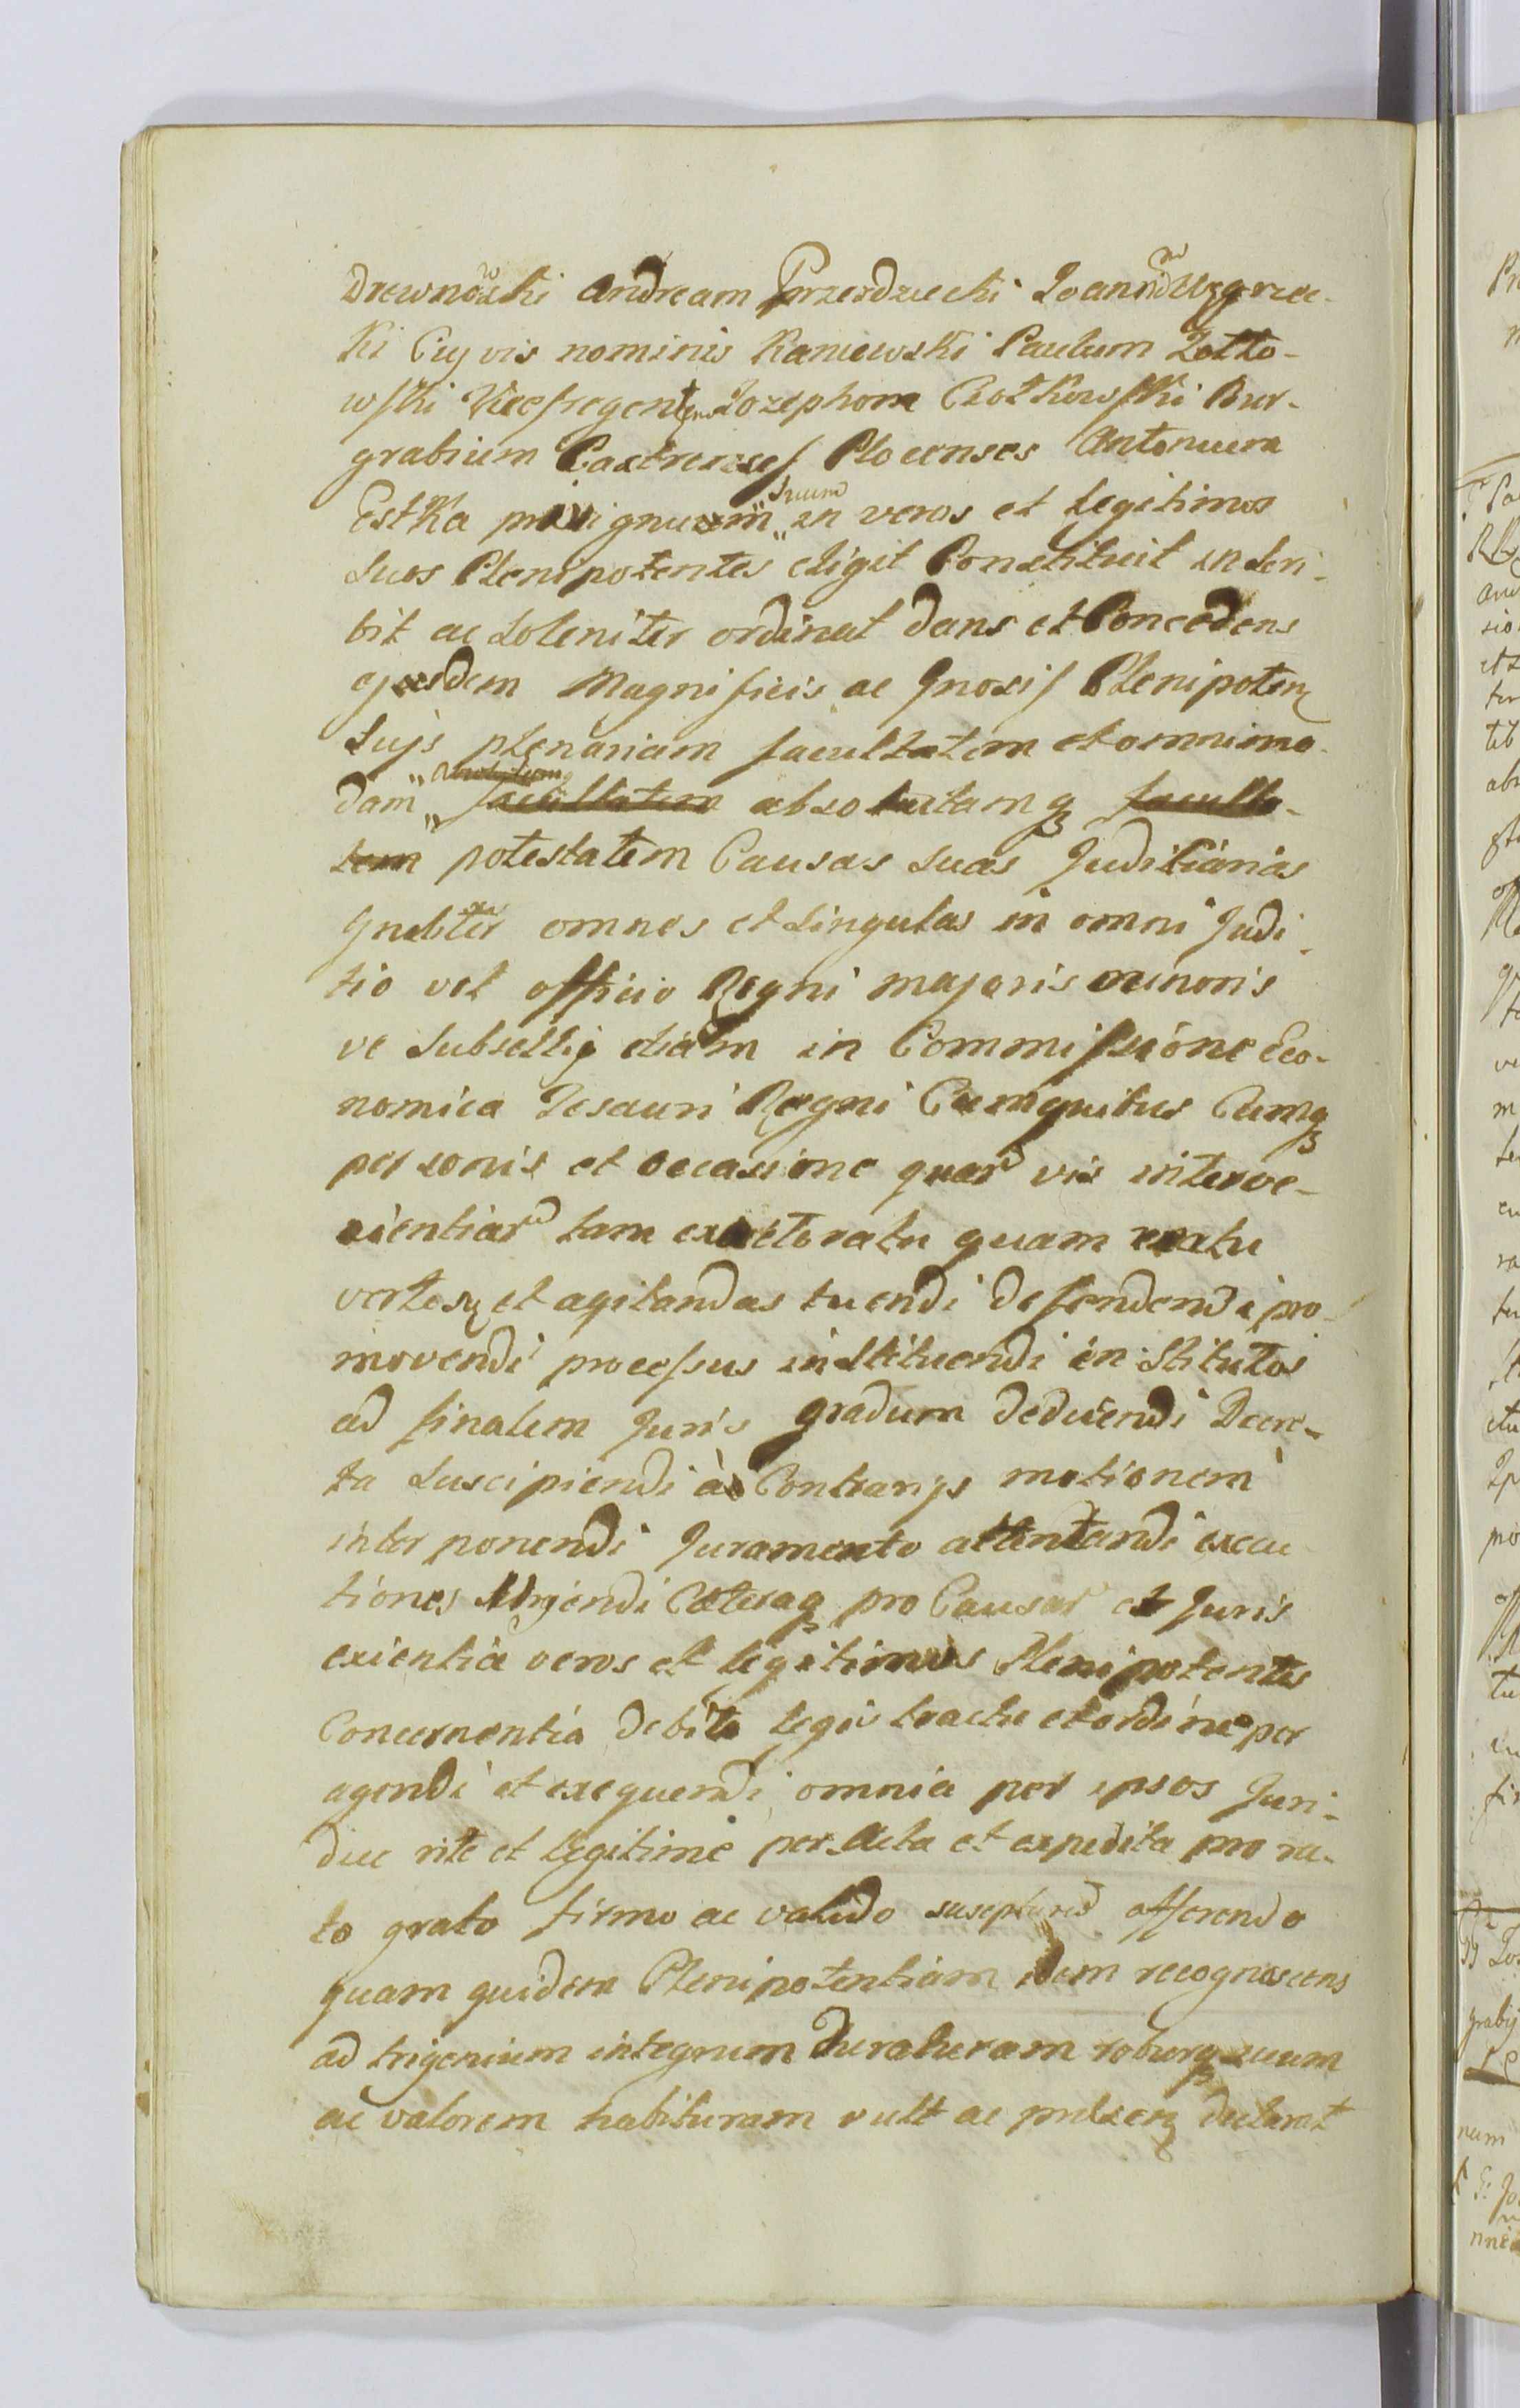 Drewnowski Andream Przezdziecki Joannem Węgrzec-
ki Cujvis nominis Kaniewski Paulum Zołto-
wski Vicesregentem Jozephom Czołkowski Bur-
grabium Castrenses Plocenses Antonium
Estka privignum suum in veros et legitimos
Suos Plenipotentes eligit Constituit inscri-
bit ac Soleniter ordinat dans et Concedens
ejusdem Magnificis ac Gnosis Plenipoten
Sujs plenariam facultatem et omnimo-
dam facultatem absolutamq faculta-
tem potestatem Causas suas Juditiarias
Gnaliter omnes et Singulas in omni Judi-
tio vel officio Regni majoris minoris
ve Subsellij etiam in Commissione Eco-
nomica Tesauri Regni Cumquibus Cumq
personis et occasione quar vis interve-
nientiar tam exactoratu quam reatu
vertesz et agitandas tuendi defendendi pro-
movendi processus instituendi institutos
ad finalem Juris gradum deducendi Decre-
ta Suscipiendi à Contrarijs motionem
interponendi Juramento attentandi execu
tiones Urgendi Cæteraq pro Causar et Juris
exientia veros et legitimos Plenipotentes
Concernentia debito legis tractu et ordine per
agendi et exequendi omnia per ipsos Juri-
dice rite et legitime per Acta et expedita pro ra-
to grato firmo ac valido suscepturum offerendo
quam quidem Plenipotentiam idem recognoscens
ad trigenium integrum duraturam roburq suum
ac valorem habituram vult ac præsen declarat